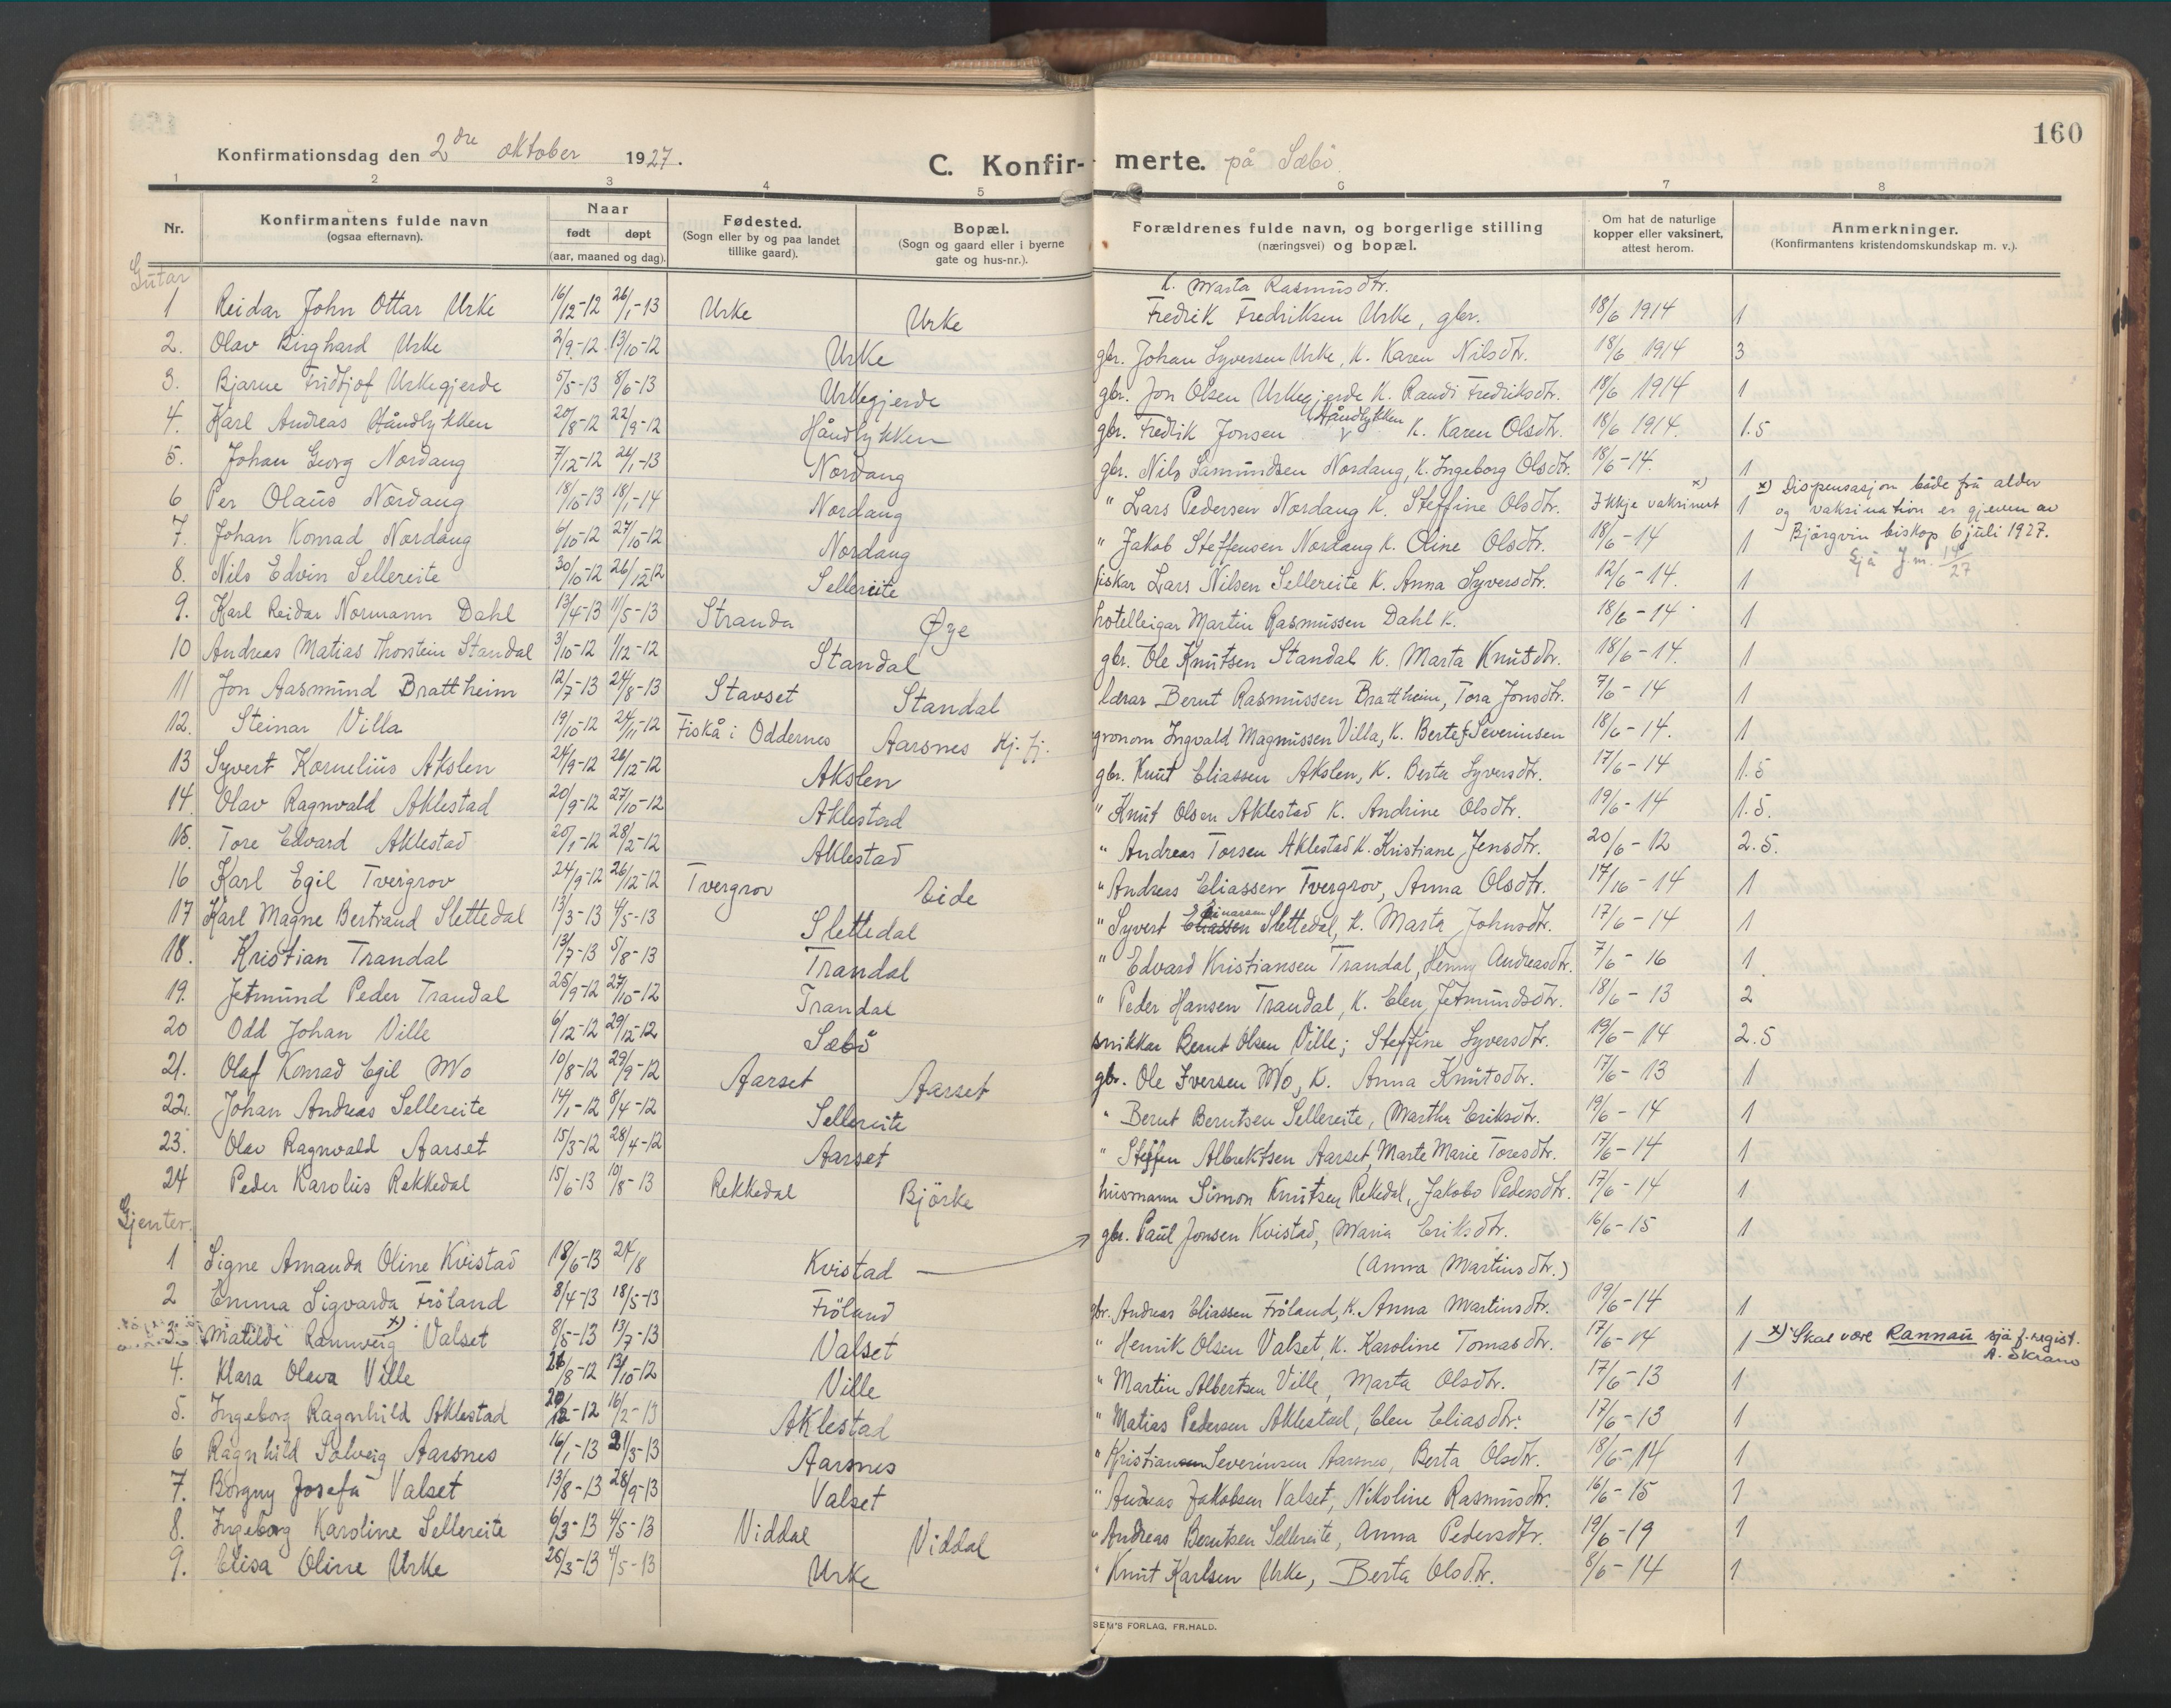 160
Konfirmationsdag den 2dre oktober 1927.
C. Konfir- merte. på Sæbö.
1 2 3 4 5 6 7 8
Nr. Konfirmantens fulde navn (ogsaa efternavn). Naar født døpt (aar, maaned og dag). Fødested. (Sogn eller by og paa landet tillike gaard). Bopæl. (Sogn og gaard eller i byerne gate og hus-nr.). Forældrenes fulde navn, og borgerlige stilling (næringsvei) og bopæl. Om hat de naturlige kopper eller vaksinert, attest herom. Anmerkninger. (Konfirmantens kristendomskundskap m. v.).
Gutar
K. Marta Rasmusdtr.
1 Reidar John Ottar Urke 16/12-12 26/1-13 Urke Urke Fredrik Fredriksen Urke, gbr. 18/6 1914 1
2. Olav Birghard Urke 2/9-12 13/10-12 Urke gbr. Johan Syversen Urke, K. Karen Nilsdtr. 18/6 1914 3
3. Bjarne Fridtjof Urkegjerde 5/5-13 8/6-13 Urkegjerde gbr. Jon Olsen Urkegjerde K. Randi Fredriksdtr. 18/6 1914 1
4. Karl Andreas Håndlykken 20/8-12 22/9-12 Håndlykken gbr. Fredrik Jonsen Håndlykken K. Karen Olsdtr. 18/6 1914. 1.5
5. Johan Georg Nordang 7/12-12 24/1-13 Nordang gbr. Nils Samundsen Nordang, K. Ingeborg Olsdtr. 18/6-14. 1
6 Per Olaus Nordang 18/10-13 18/1-14 Nordang " Lars Pedersen Nordang K. Steffine Olsdtr. Ikkje vaksinert x) 1 x) Dispensasjon både frå alder
og vaksination er gjeven av
7. Johan Konrad Nordang 6/10-12 27/10-12 Nordang " Jakob Steffensen Nordang K. Oline Olsdtr. 18/6-14 1 Bjørgvin biskop 6 juli 1927.
Sjå J.nr. 14/27
8. Nils Edvin Sellereite 30/10-12 26/12-12 Sellereite fiskar Lars Nilsen Sellereite K. Anna Syversdtr. 12/6-14. 1
9. Karl Reidar Normann Dahl 13/4-13 11/5-13 Stranda Øye hotelleigar Martin Rasmussen Dahl K. 18/6-14 1
10 Andreas Matias Thorstein Standal 3/10-12 1/12-12 Standal gbr. Ole Knutsen Standal K. Marta Knutsdtr. 18/6-14. 1
11 Jon Aasmund Brattheim 12/7-13 24/8-13 Stavset Standal lærar Bernt Rasmussen Brattheim, Tora Jonsdtr. 7/6-14 1
12. Steinar Villa 19/10-12 24/11-12 Fiskå i Oddernes Aarsnes Hj. fj. gronom Ingvald Magnussen Villa, K. Berte f. Severinsen 18/6-14. 1
13 Syvert Kornelius Akslen 24/9-12 26/12-12 Akslen gbr. Knut Eliassen Akslen, K. Berta Syversdtr. 17/6-14 1.5
14. Olav Ragnvald Aklestad 20/9-12 27/10-12 Aklestad " Knut Olsen Aklestad K. Andrine Olsdtr. 19/6-14 1.5.
15. Tore Edvard Aklestad 20/1-12 28/2-12 Aklestad " Andreas Torsen Aklestad K. Kristiane Jensdtr. 20/6-12 2.5.
16 Karl Egil Tvergrov 24/9-12 26/12-12 Tvergrov Eide " Andreas Eliassen Tvergrov, Anna Olsdtr. 17/16-14 1
17 Karl Magne Bertrand Slettedal 13/3-13 4/5-13 Slettedal " Syvert Eliassen Einarsen Slettedal, K. Marta Johnsdtr. 17/6-14 1
18. Kristian Trandal 13/7-13 5/8-13 Trandal " Edvard Kristiansen Trandal, Henny Andreasdtr. 7/6-16 1
19. Jetmund Peder Trandal 25/9-12 27/10-12 Trandal " Peder Hansen Trandal, K. Elen Jetmundsdtr. 18/6-13 2
20 Odd Johan Ville 6/12-12 29/12-12 Sæbö snikkar Bernt Olsen Ville; Steffine Syversdtr. 19/6-14 2.5
21. Olaf Konrad Egil Mo 10/8-12 29/9-12 Aarset Aarset gbr. Ole Iversen Mo, K. Anna Knutsdtr. 17/6-13 1
22. Johan Andreas Sellereite 14/1-12 8/4-12 Sellereite " Bernt Berntsen Sellereite, Martha Eriksdtr. 19/6-14 1
23. Olav Ragnvald Aarset 15/3-12 28/4-12 Aarset " Steffen Albrektsen Aarset, Marte Marie Toresdtr. 17/6-14 1
24 Peder Karolius Rekkedal 15/6-13 10/8-13 Rekkedal Björke husmann Simon Knutsen Rekedal, Jakobo Pedersdtr. 17/6-14 1
Gjenter.
1 Signe Amanda Oline Kvistad 18/6-13 24/8 Kvistad gbr. Paul Jonsen Kvistad, Maria Eriksdtr. 16/6-15 1
(Anna Martinsdtr.)
2 Emma Sigvarda Fröland 8/4-13 18/5-13 Fröland gbr. Andreas Eliassen Fröland, K. Anna Martinsdtr. 19/6-14 1
3. Matilde Rannveig x) Valset 8/5-13 13/7-13 Valset " Henrik Olsen Valset, K. Karoline Tomasdtr. 17/6-14 1 x) Skal være Rannau sjå f. regist.
A. Skrano
4. Klara Oleva Ville 26/8-12 13/10-12 Ville " Martin Albertsen Ville, Marta Olsdtr. 17/6-13 1
5. Ingeborg Ragnhild Aklestad 20/12-12 16/2-13 Aklestad " Matias Pedersen Aklestad, Elen Eliasdtr. 17/6-13 1
6 Ragnhild Solveig Aarsnes 16/1-13 21/3-13 Aarsnes " Kristiansen Severinsen Aarsnes, Berta Olsdtr. 18/6-14 1
7. Borgny Josefa Valset 13/8-13 28/9-13 Valset " Andreas Jakobsen Valset, Nikoline Rasmusdtr. 16/6-15 1
8. Ingeborg Karoline Sellereite 6/3-13 4/5-13 Viddal Viddal " Andreas Berntsen Sellereite, Anna Pedersdtr. 19/6-19 1
9. Elisa Oline Urke 25/3-13 4/5-13 Urke " Knut Karlsen Urke, Berta Olsdtr. 8/6-14 1
SEM'S FORLAG, FR.HALD.